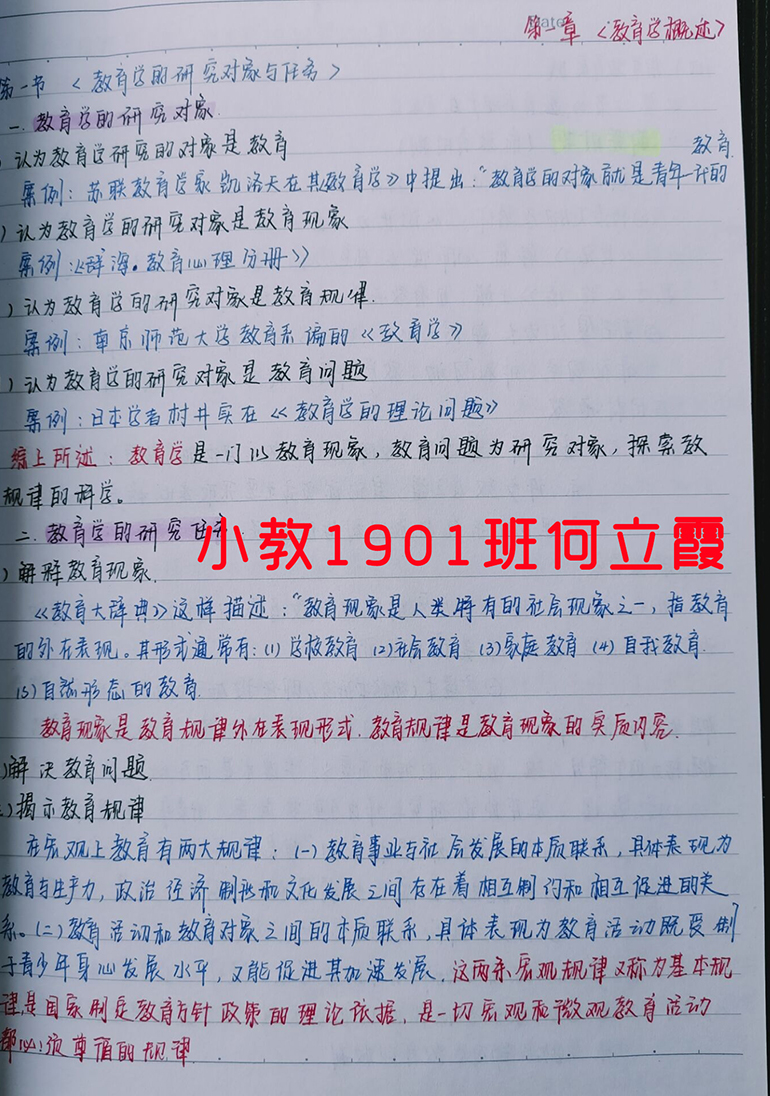 Date
第一章 《教育学概述》
第一节 《教育学的研究对象与任务》
一. 教育学的研究对象.
)认为教育学研究的对象是教育
案例：苏联教育学家凯洛夫在其《教育学》中提出："教育学的对象就是青年一代的教育
)认为教育学的研究对象是教育现象
案例：《辞海。教育心理分册》
)认为教育学的研究对象是教育规律.
案例：南京师范大学教育系编的《教育学》
)认为教育学的研究对象是教育问题
案例：日本学者村井实在《教育学的理论问题》
综上所述：教育学是一门以教育现象，教育问题为研究对象，探索教
规律的科学。
二. 教育学的研究任务
)解释教育现象.
《教育大辞典》这样描述："教育现象是人类特有的社会现象之一，指教育
的外在表现。其形式通常有：(1) 学校教育 (2)社会教育 (3)家庭教育 (4) 自我教育.
(5)自然形态的教育.
教育现象是教育规律外在表现形式.教育规律是教育现象的实质内容.
)解决教育问题.
)揭示教育规律
在宏观上教育有两大规律：(一)教育事业与社会发展的本质联系，具体表现为
教育与生产力，政治经济制度和文化发展之间存在着相互制约和相互促进的关
系。(二)教育活动和教育对象之间的本质联系，具体表现为教育活动既受制
于青少年身心发展水平，又能促进其加速发展.这两条宏观规律又称为基本规
律,是国家制定教育方针政策的理论依据，是一切宏观和微观教育活动
都必须遵循的规律.
小教1901班何立霞